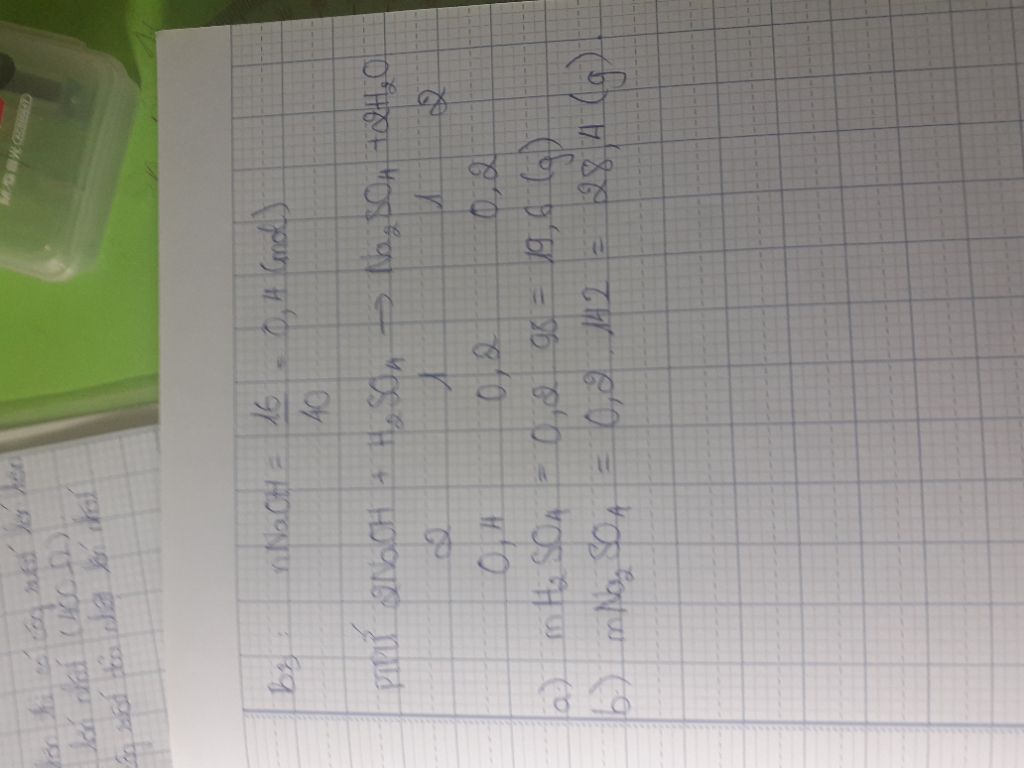 B3: nNaOH = 16/40 = 0,4 (mol)
PTPƯ 2NaOH + H₂SO₄ → Na₂SO₄ + 2H₂O
2 1 1 2
0,4 0,2 0,2
a) mH₂SO₄ = 0,2 . 98 = 19,6 (g)
b) mNa₂SO₄ = 0,2 . 142 = 28,4 (g).